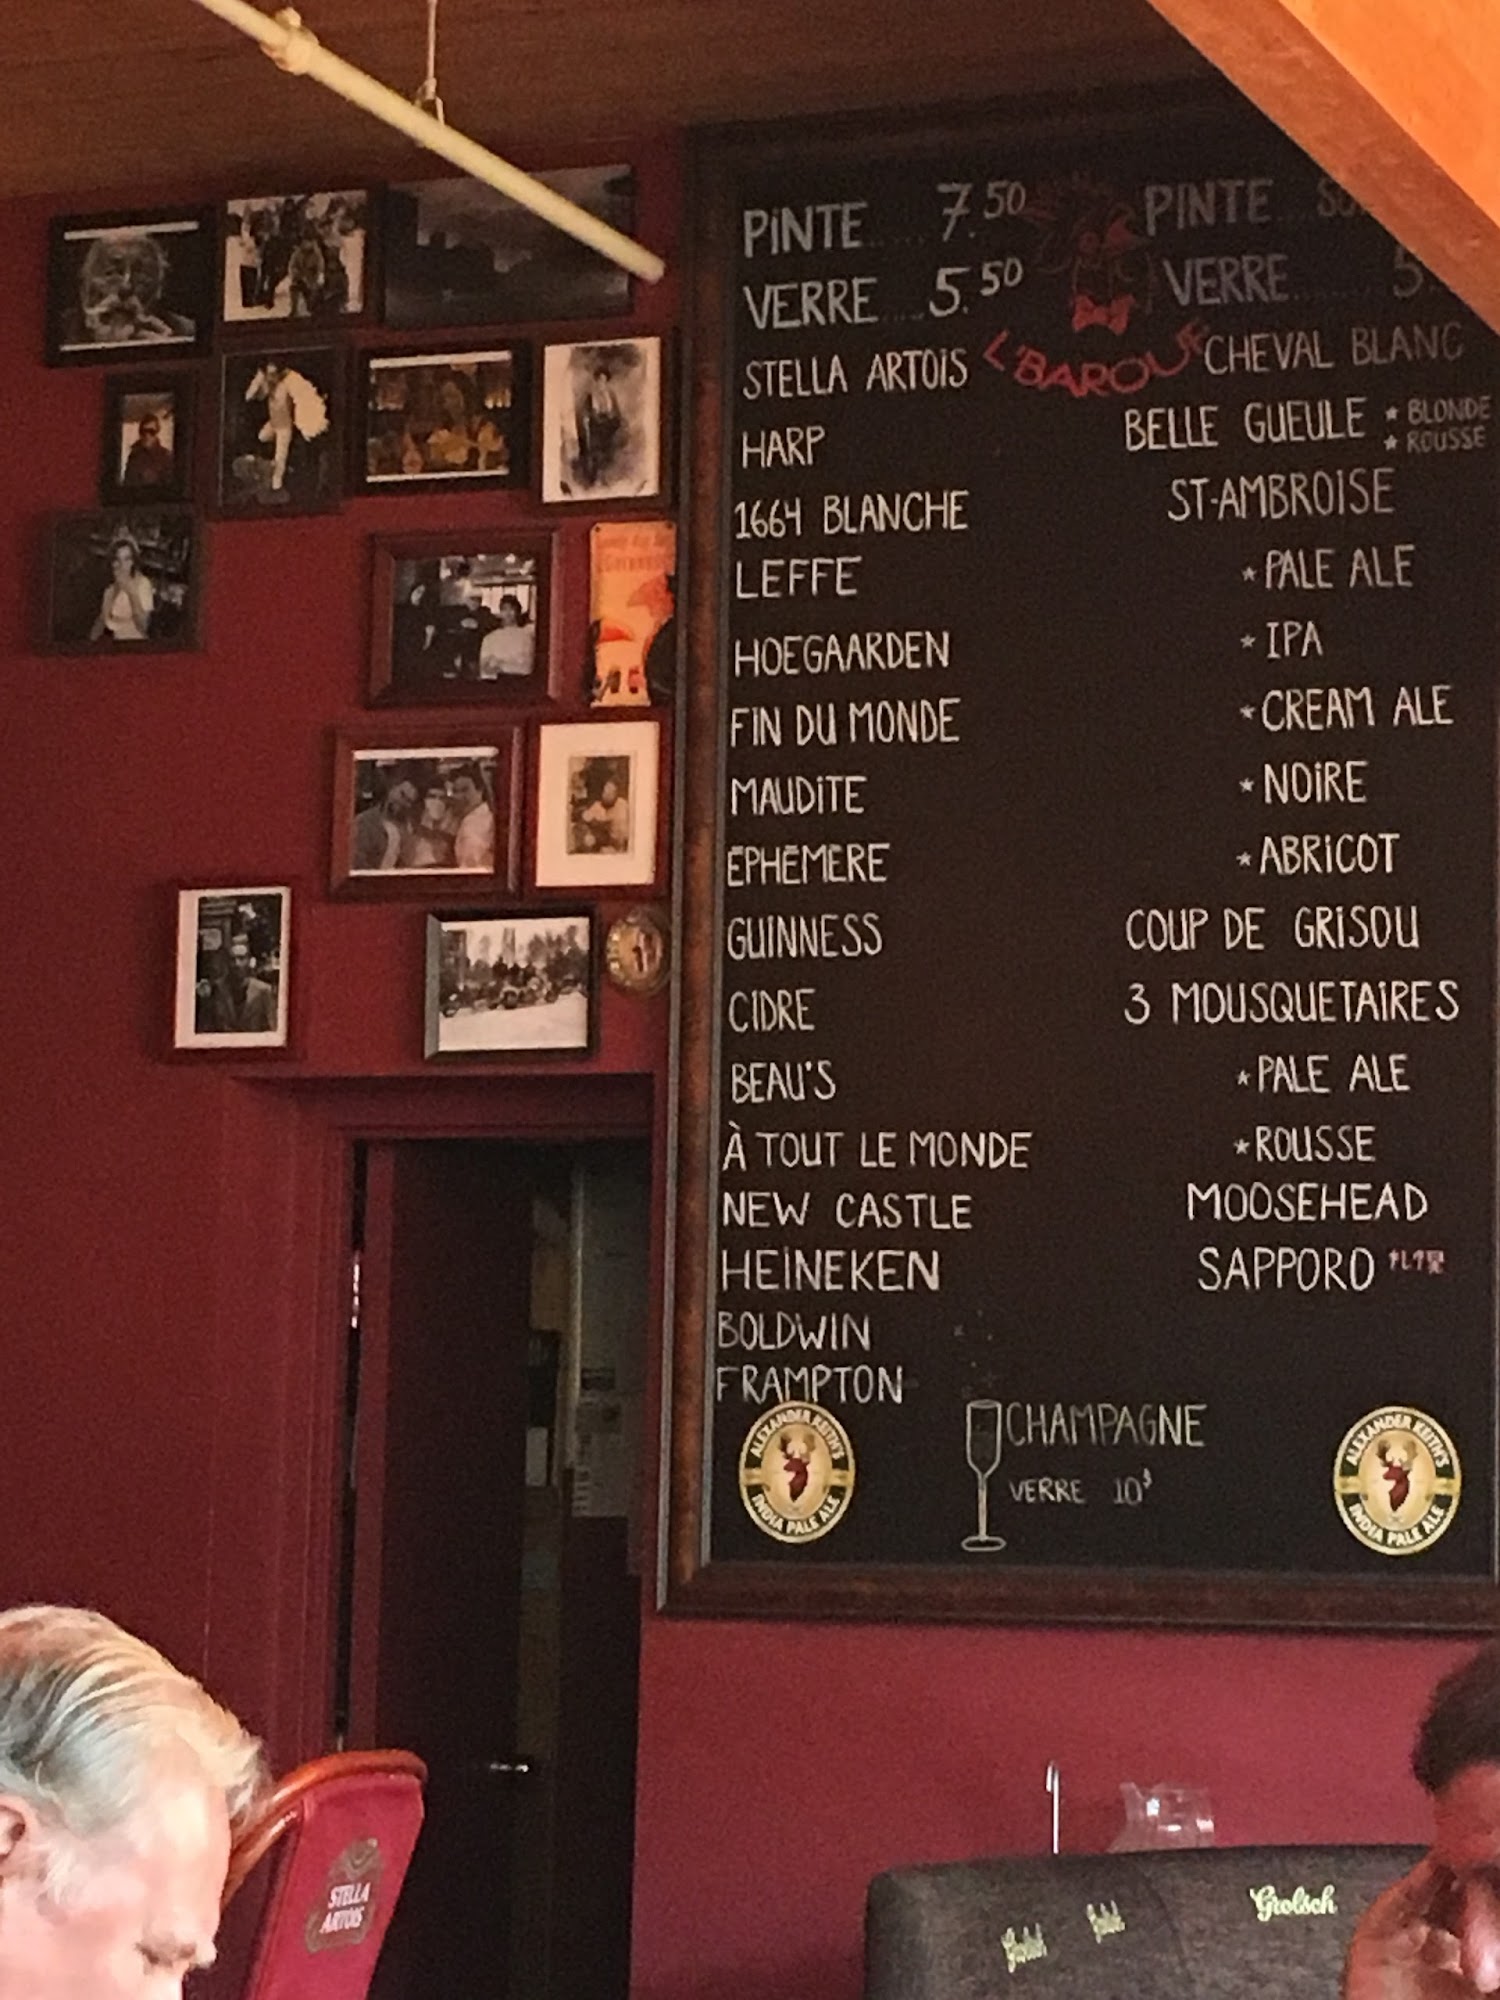 PINTE..... 7.50
VERRE....5.50
STELLA ARTOIS
HARP
1664 BLANCHE
LEFFE
HOEGAARDEN
FIN DU MONDE
MAUDITE
ÉPHÉMÈRE
GUINNESS
CIDRE
BEAU'S
À TOUT LE MONDE
NEW CASTLE
HEINEKEN
BOLDWIN
FRAMPTON
L'BAROUF
PINTE....
VERRE........5.
CHEVAL BLANC
BELLE GUEULE * BLONDE
* ROUSSE
ST-AMBROISE
* PALE ALE
* IPA
* CREAM ALE
* NOIRE
* ABRICOT
COUP DE GRISOU
3 MOUSQUETAIRES
* PALE ALE
* ROUSSE
MOOSEHEAD
SAPPORO
CHAMPAGNE
VERRE 10$
ALEXANDER KEITH'S
INDIA PALE ALE
ALEXANDER KEITH'S
INDIA PALE ALE
STELLA
ARTOIS
Grolsch
Grolsch
Grolsch